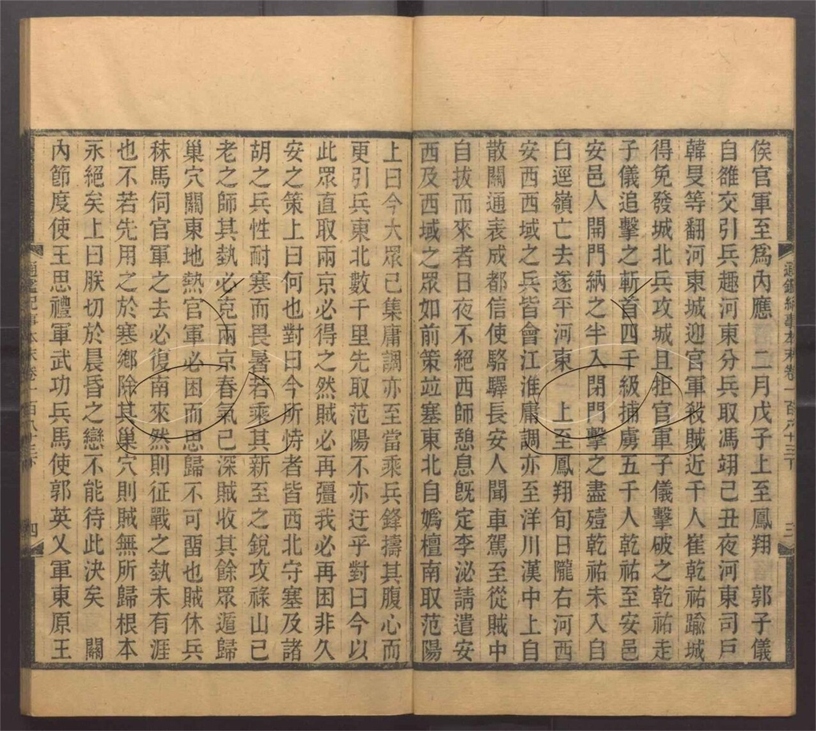 俟官軍至爲內應　二月戊子上至鳳翔　郭子儀
自雒交引兵趣河東分兵取馮翊己丑夜河東司戸
韓旻等翻河東城迎官軍殺賊近千人崔乾祐踰城
得免發城北兵攻城且拒官軍子儀擊破之乾祐走
子儀追擊之斬首四千級捕虜五千人乾祐至安邑
安邑人開門納之半入閉門擊之盡殪乾祐未入自
白逕嶺亡去遂平河東　上至鳳翔旬日隴右河西
安西西域之兵皆會江淮庸調亦至洋川漢中上自
散關通表成都信使駱驛長安人聞車駕至從賊中
自拔而來者日夜不絕西師憩息旣定李泌請遣安
西及西域之衆如前策竝塞東北自嬀檀南取范陽
通鑑紀事本末卷一百八十三下
三
上曰今大眾已集庸調亦至當乘兵鋒擣其腹心而
更引兵東北數千里先取范陽不亦迂乎對曰今以
此眾直取兩京必得之然賊必再彊我必再困非久
安之策上曰何也對曰今所恃者皆西北守塞及諸
胡之兵性耐寒而畏暑若乘其新至之銳攻祿山已
老之師其埶必克兩京春氣已深賊收其餘眾遁歸
巢穴關東地熱官軍必困而思歸不可畱也賊休兵
秣馬伺官軍之去必復南來然則征戰之埶未有涯
也不若先用之於寒鄉除其巢穴則賊無所歸根本
永絕矣上曰朕切於晨昏之戀不能待此決矣　關
內節度使王思禮軍武功兵馬使郭英乂軍東原王
通鑑紀事本末卷一百八十三下
四